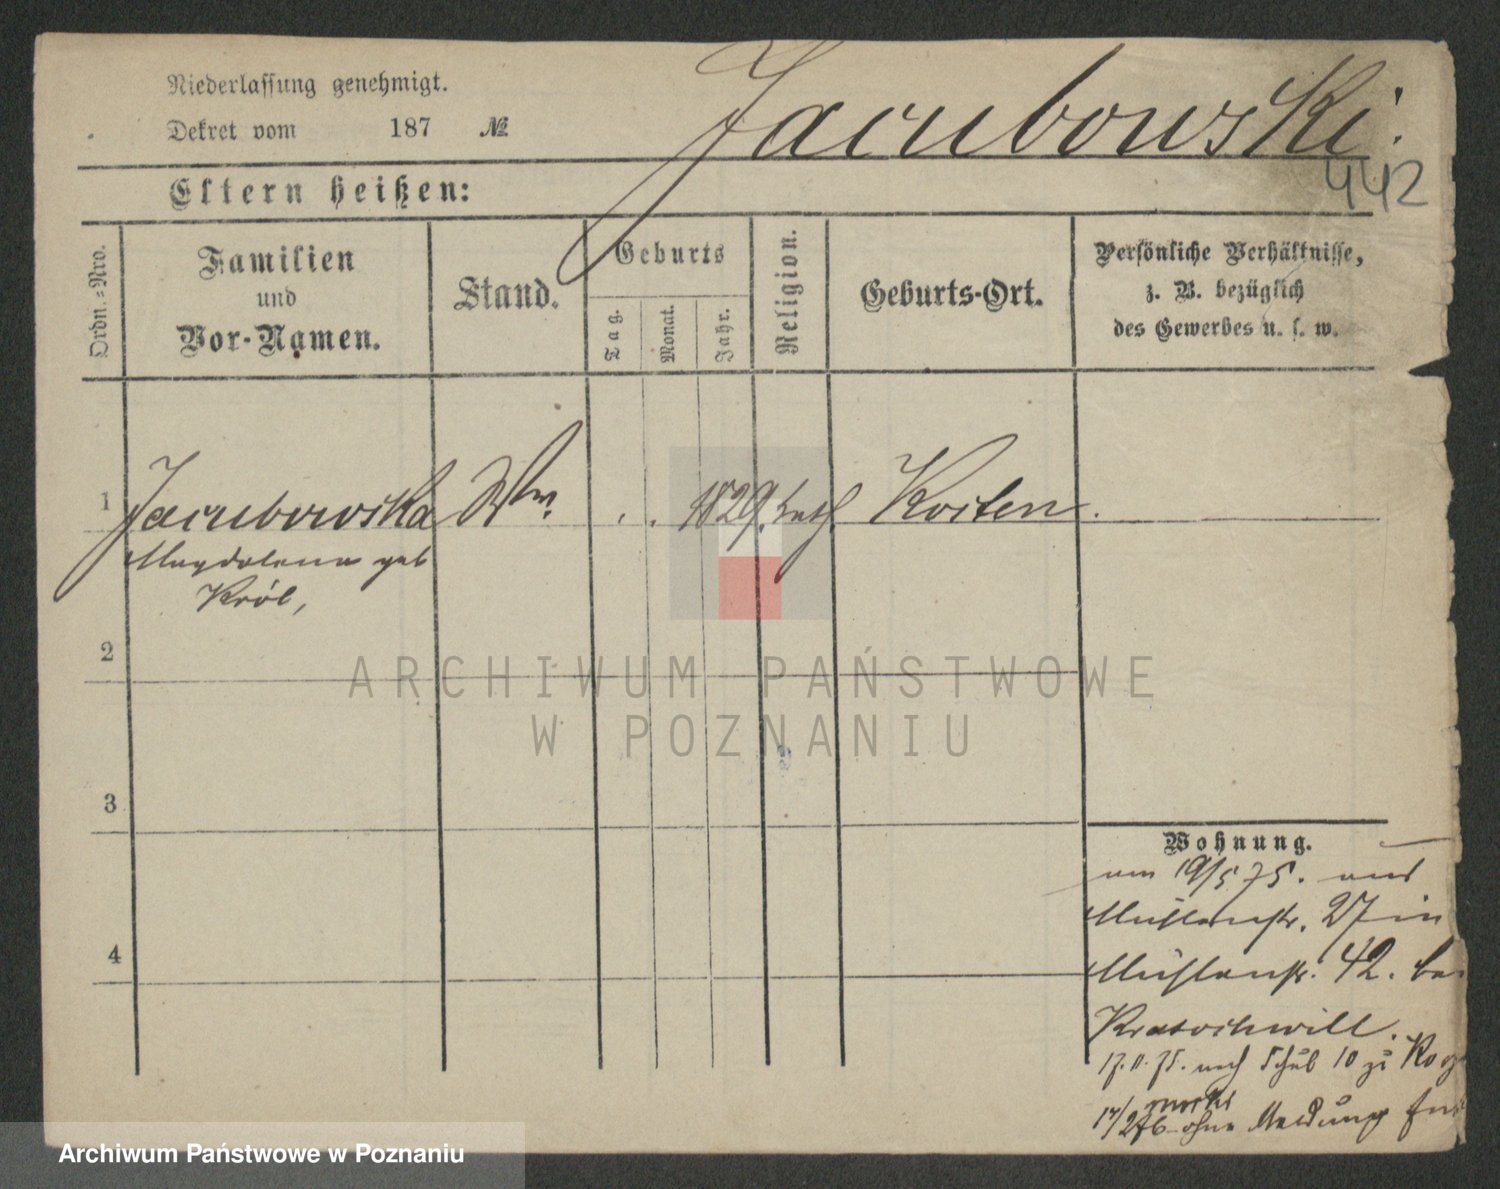 Niederlassung genehmigt.
Dekret vom 187 №
Jacubowski.
442
Eltern heißen:
Ordn.=Nro.
Familien
und
Vor-Namen.
Stand.
Geburts
Tag.
Monat.
Jahr.
Religion.
Geburts-Ort.
Persönliche Verhältnisse,
z. B. bezüglich
des Gewerbes u. s. w.
1 Jacubowska Ww. . . 1829. kath. Kosten.
Magdalena geb
Król,
2
ARCHIWUM PAŃSTWOWE
W POZNANIU
3
4
Wohnung.
am 19/5 75. aus
Mühlenstr. 27 in
Mühlenstr. 42. be
Kratochwill.
17. 11. 75. nach Schüb 10 zu
markt
ohne Meldung
Archiwum Państwowe w Poznaniu